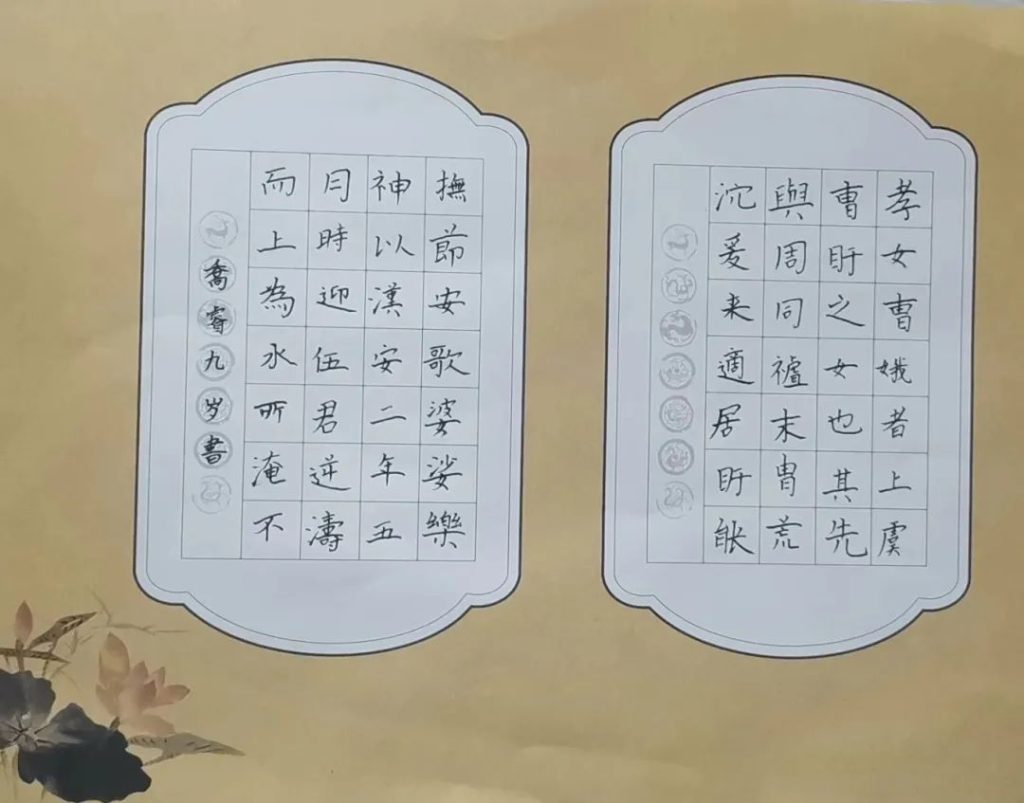 孝女曺娥者上虞
曺盱之女也其先
與周同禮末胄荒
沉爰来適居盱能
撫節安歌婆娑樂
神以漢安二年五
月時迎伍君逆濤
而上為水所淹不
喬睿九岁書